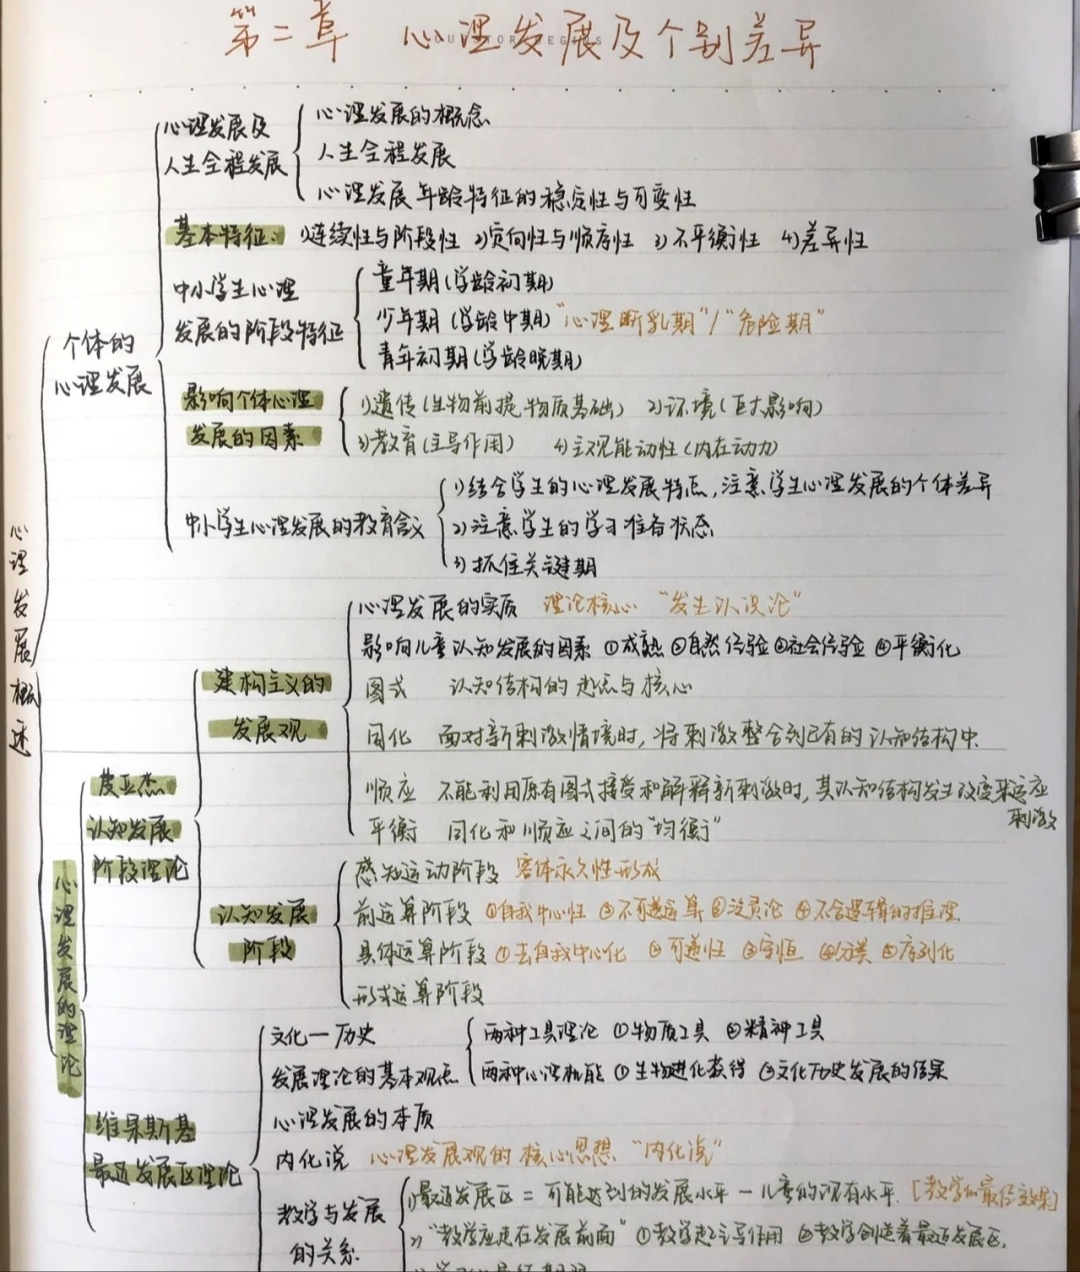 第二章 心理发展及个别差异
心理发展概述
个体的
心理发展
心理发展及
人生全程发展
心理发展的概念
人生全程发展
心理发展年龄特征的稳定性与可变性
基本特征: 1)连续性与阶段性 2)定向性与顺序性 3)不平衡性 4)差异性
中小学生心理
发展的阶段特征
童年期(学龄初期)
少年期(学龄中期) “心理断乳期”/“危险期”
青年初期(学龄晚期)
影响个体心理
发展的因素
1)遗传(生物前提,物质基础) 2)环境(巨大影响)
3)教育(主导作用) 4)主观能动性(内在动力)
中小学生心理发展的教育含义
1)结合学生的心理发展特点,注意学生心理发展的个体差异
2)注意学生的学习准备状态
3)抓住关键期
心理发展的理论
皮亚杰
认知发展
阶段理论
建构主义的
发展观
心理发展的实质 理论核心 “发生认识论”
影响儿童认知发展的因素 ①成熟 ②自然经验 ③社会经验 ④平衡化
图式 认知结构的起点与核心
同化 面对新刺激情境时,将刺激整合到已有的认知结构中.
顺应 不能利用原有图式接受和解释新刺激时,其认知结构发生改变来适应
刺激
平衡 同化和顺应之间的“均衡”
认知发展
阶段
感知运动阶段 客体永久性形成
前运算阶段 ①自我中心性 ②不可逆运算 ③泛灵论 ④不合逻辑的推理.
具体运算阶段 ①去自我中心化 ②可逆性 ③守恒 ④分类 ⑤序列化
形式运算阶段
维果斯基
最近发展区理论
文化一历史
发展理论的基本观点
两种工具理论 ①物质工具 ②精神工具
两种心理机能 ①生物进化获得 ②文化历史发展的结果
心理发展的本质
内化说 心理发展观的核心思想 “内化说”
教学与发展
的关系
1)最近发展区 = 可能达到的发展水平 — 儿童的现有水平. [教学的最佳效果]
2)“教学应走在发展前面” ①教学起主导作用 ②教学创造着最近发展区.